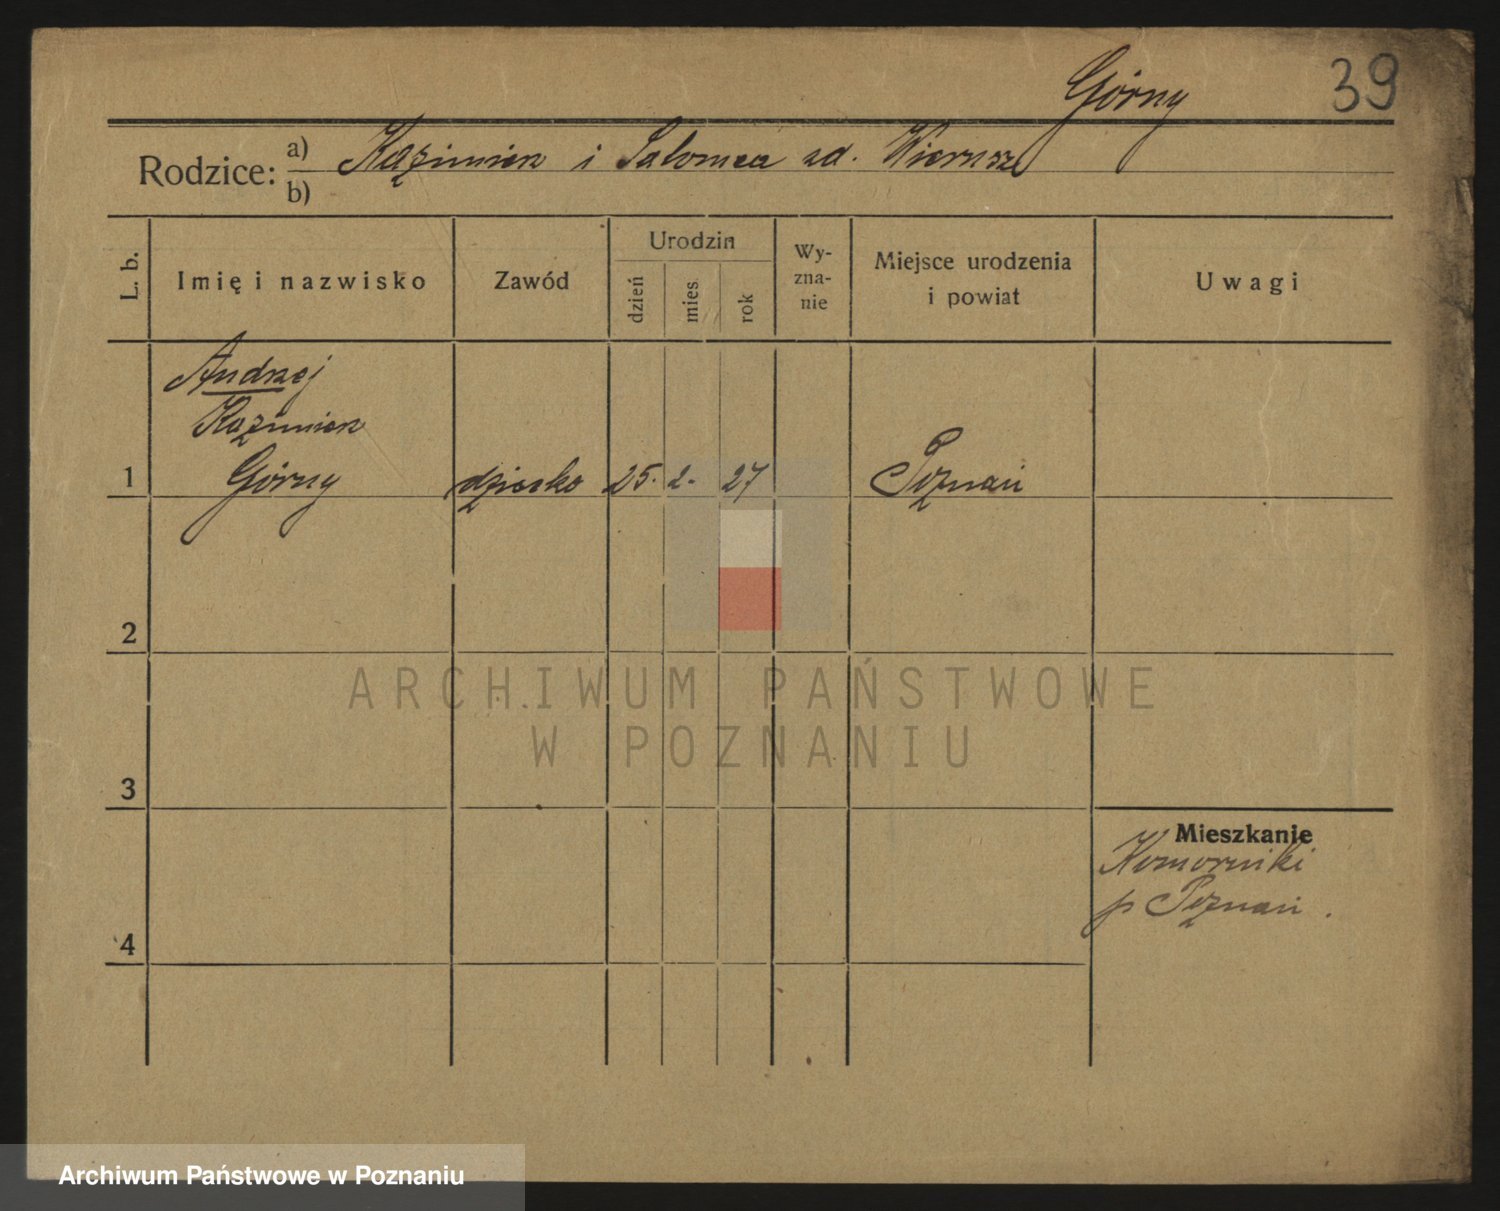 Górny 39
Rodzice: a) Kazimierz i Salomea zd. Wiersze
b)
L. b. Imię i nazwisko Zawód Urodzin dzień mies. rok Wy-zna-nie Miejsce urodzenia i powiat Uwagi
Andrzej
Kazimierz
1 Górny dziecko 25. 2. 27 Poznań
2
ARCHIWUM PAŃSTWOWE
W POZNANIU
3
Mieszkanie
Komorniki
p Poznań.
4
Archiwum Państwowe w Poznaniu